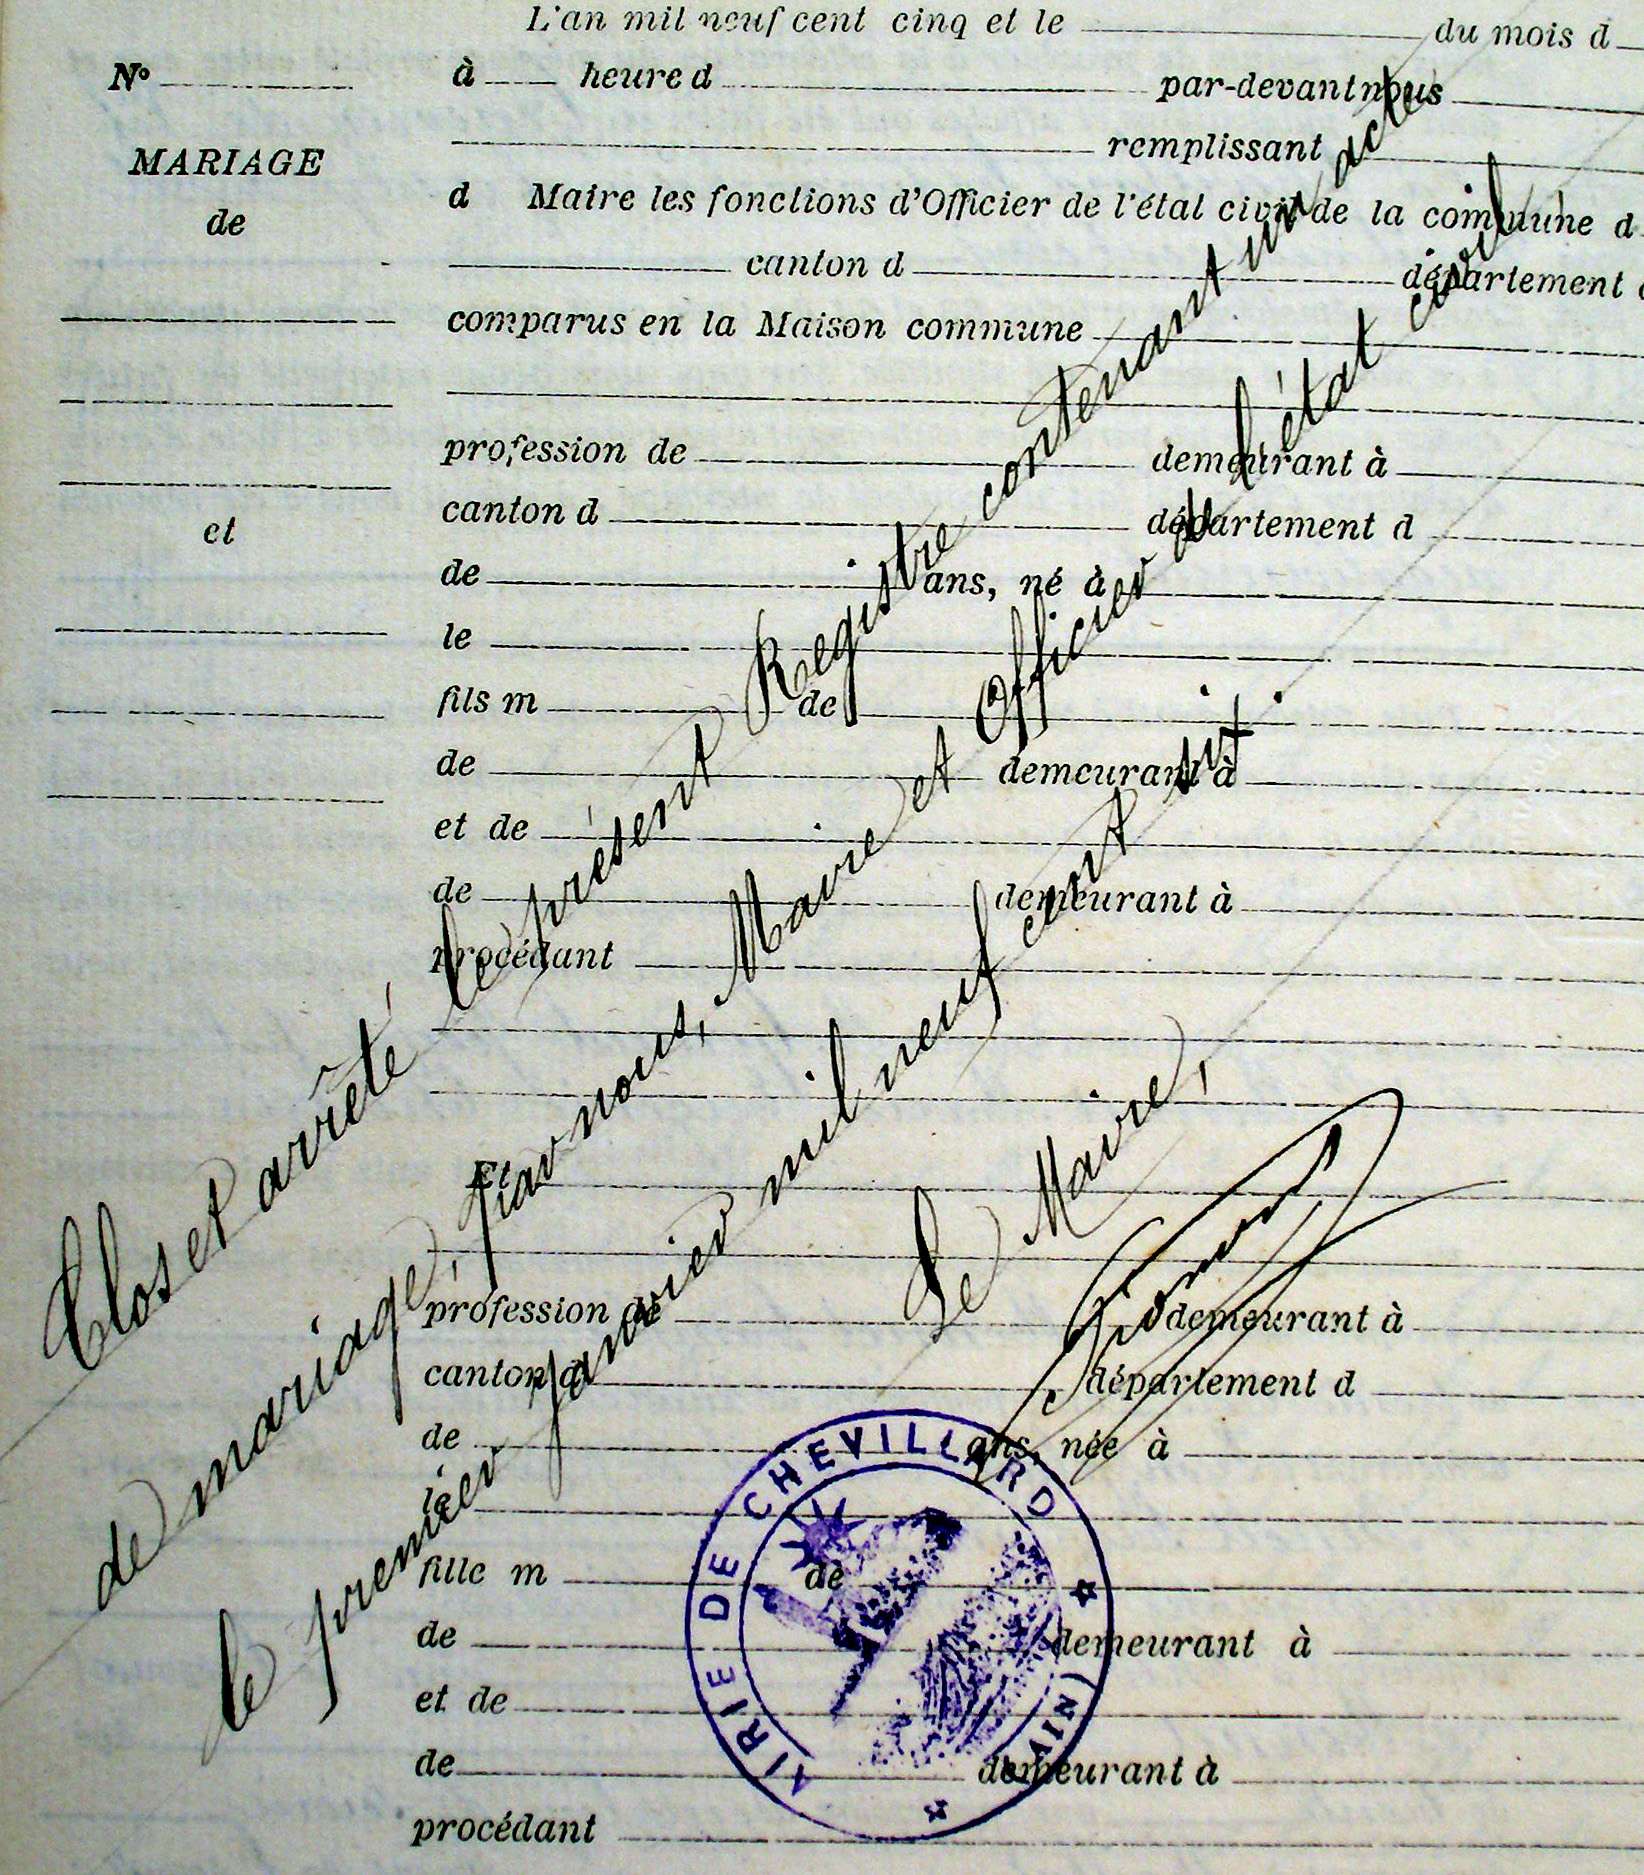 L'an mil neuf cent cinq et le du mois d
No à heure d par-devant nous
MARIAGE remplissant
de d Maire les fonctions d'Officier de l'état civil de la commune d
canton d département
comparus en la Maison commune
profession de demeurant à
et canton d département d
de ans, né à
le
fils m de
de demeurant à
et de
de demeurant à
procédant
Et
profession de demeurant à
canton d département d
de ans, née à
le
fille m de
de demeurant à
et de
de demeurant à
procédant
Clos et arrêté le présent Registre contenant un acte
de mariage, par nous, Maire et Officier de l'état civil
le premier Janvier mil neuf cent six.
Le Maire,
AIRIE DE CHEVILLARD
(AIN)